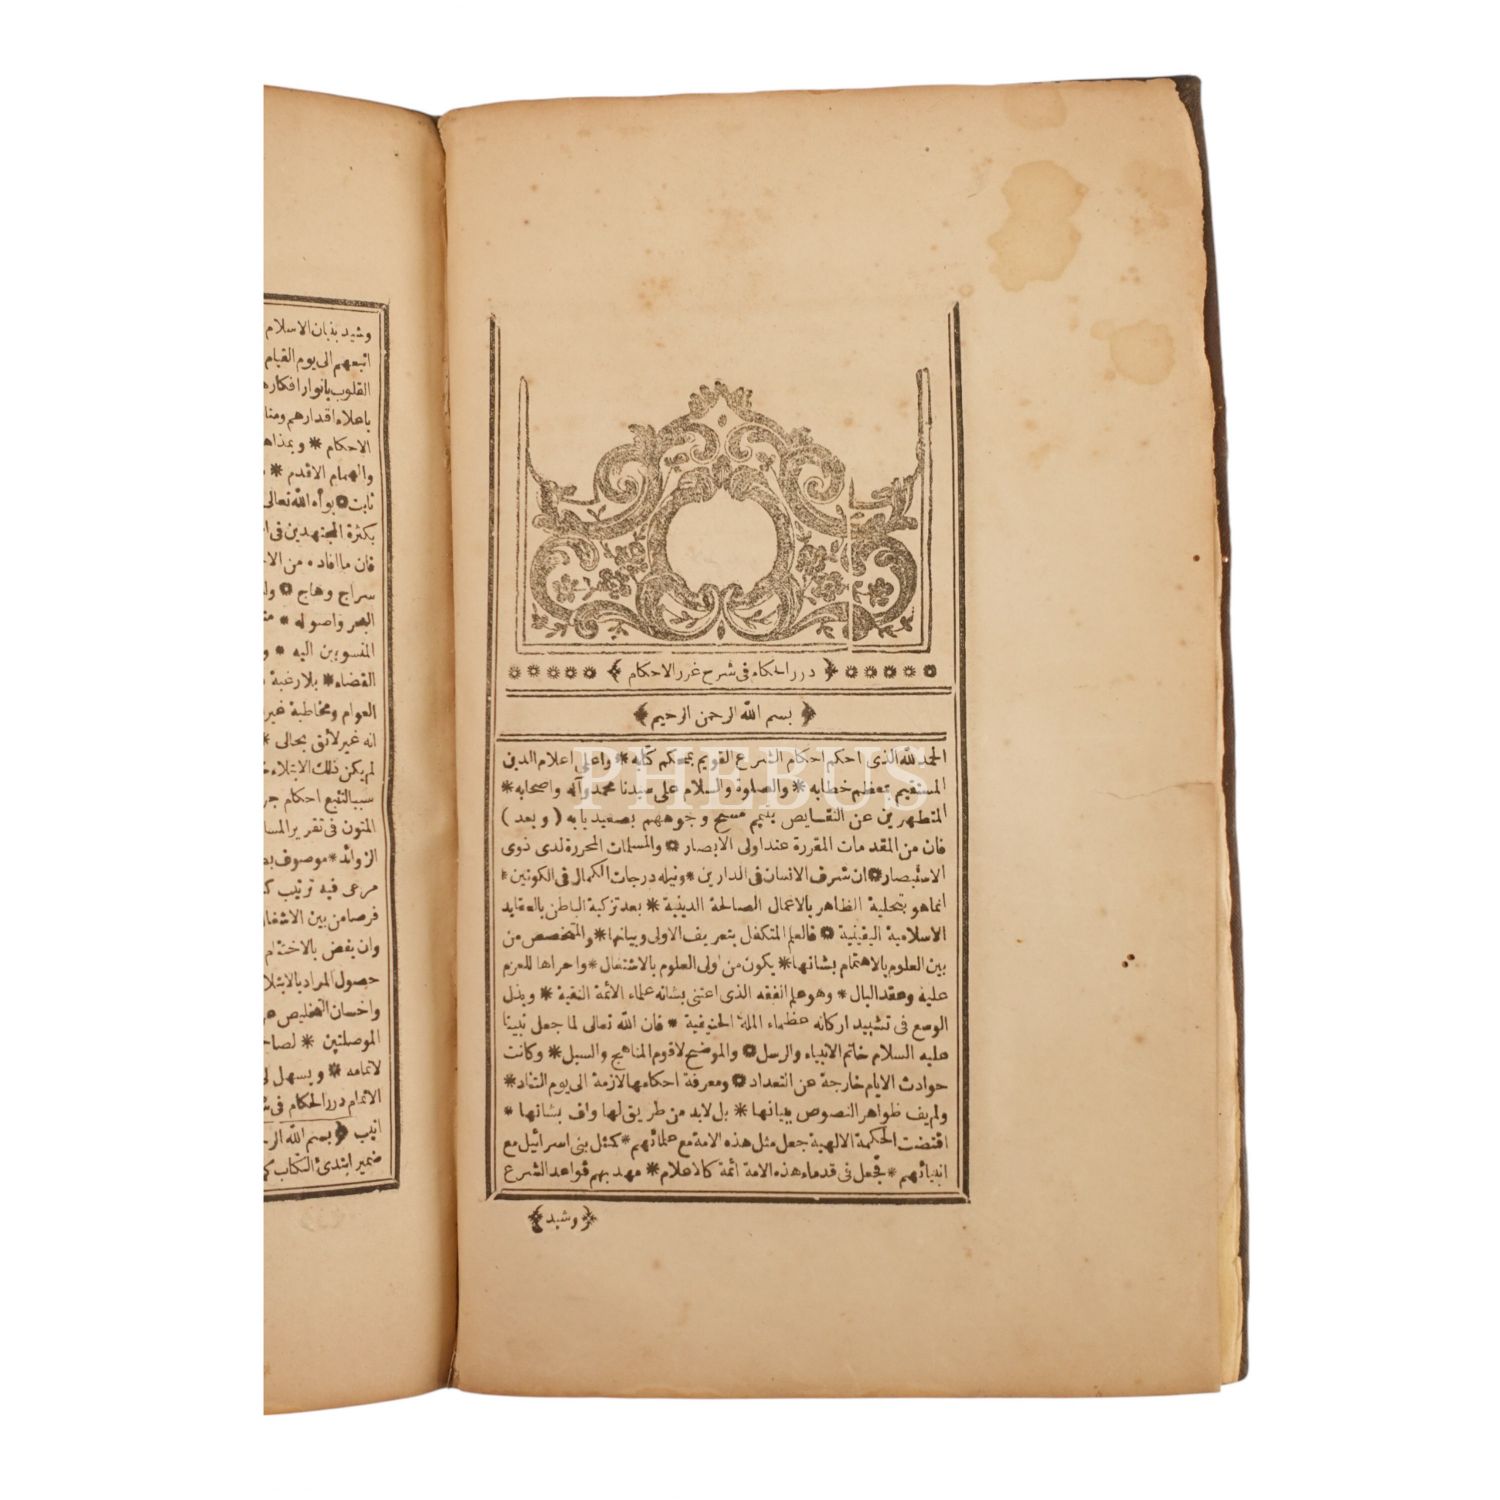 درر الحكام فى شرح غرر الاحكام
بسم الله الرحمن الرحيم
الحمد لله الذى احكم احكام الشرع القويم بمحكم كتابه * واعلى اعلام الدين
المستقيم بمعظم خطابه * والصلوة والسلام على سيدنا محمد وآله واصحابه *
المتطهرين عن النقايص بتيمم مسح وجوههم بصعيد بابه ( وبعد )
فان من المقدمات المقررة عند اولى الابصار * والمسلمات المحررة لدى ذوى
الاستبصار * ان شرف الانسان فى الدارين * ونيله درجات الكمال فى الكونين *
انما هو بتحلية الظاهر بالاعمال الصالحة الدينية * بعد تزكية الباطن بالعقايد
الاسلامية اليقينية * فالعلم المتكفل بتعريف الاولى وبيانها * والمتخصص من
بين العلوم بالاهتمام بشانها * يكون من اولى العلوم بالاشتغال * واحراها للعزم
عليه وعقد البال * وهو علم الفقه الذى اعتنى بشانه علماء الائمة النقية * وبذل
الوسع فى تشييد اركانه عظماء الملة الحنيفية * فان الله تعالى لما جعل نبينا
عليه السلام خاتم الانبياء والرسل * والموضح لاقوم المناهج والسبل * وكانت
حوادث الايام خارجة عن التعداد * ومعرفة احكامها لازمة الى يوم التناد *
ولم يف ظواهر النصوص ببيانها * بل لابد من طريق لها واف بشانها *
اقتضت الحكمة الالهية جعل مثل هذه الامة مع علمائهم * كمثل بنى اسرائيل مع
انبيائهم * فجعل فى قدماء هذه الامة ائمة كالاعلام * مهد بهم قواعد الشرع
وشيد
وشيد بنيان الاسلام
اتبعهم الى يوم القيام
القلوب بانوار افكاره
باعلاء اقدارهم ومنا
الاحكام * وبمذاه
والهمام الاقدم *
ثابت * بوأه الله تعالى
بكثرة المجتهدين فى ا
فان ما افاده من الا
سراج وهاج * ول
البحر واصوله *
المنسوبين اليه * و
القضاء * بلا رغبة
العوام ومخاطبة غير
انه غير لائق بحالى *
لم يكن ذلك الابتلاء
سببا لتتبع احكام جز
المتون فى تقرير المسا
الزوائد * موصوف بص
مرعى فيه ترتيب ك
فرصا من بين الاشغال
وان يغض بالاختتام
حصول المراد بالابتلا
واحسان التخليص عن
الموصلتين * لصاح
لاتمامه * ويسهل لى
الاتمام درر الحكام فى ش
انيب بسم الله الر
ضمير ابتدئ الكتاب كم
PHEBUS